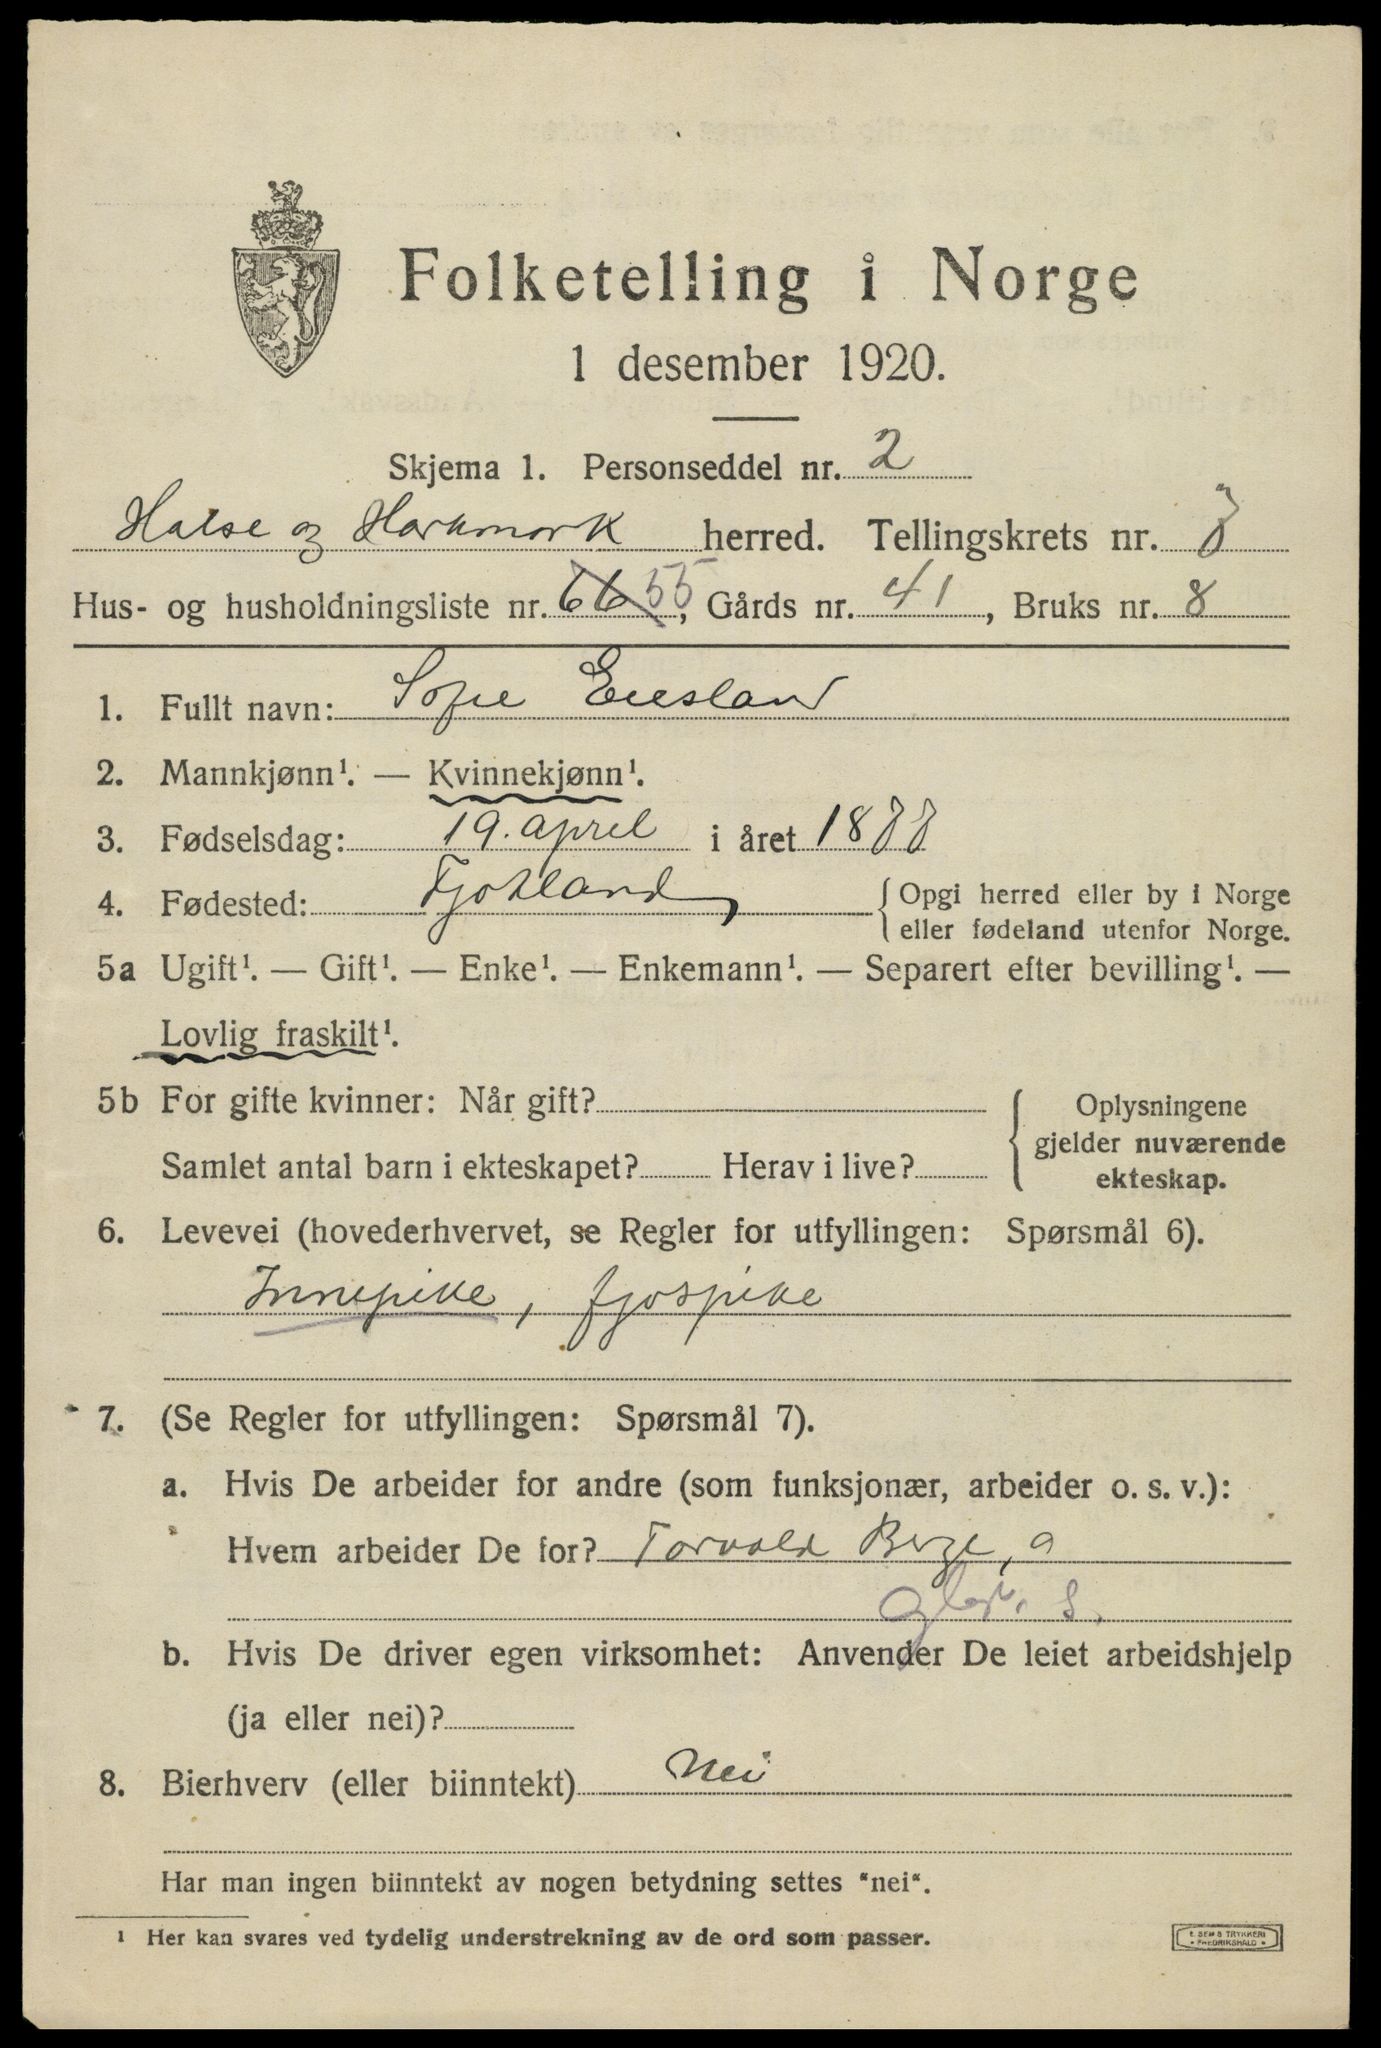 Folketelling i Norge
1 desember 1920.
Skjema 1. Personseddel nr. 2
Halse og Harkmark herred. Tellingskrets nr. 3
Hus- og husholdningsliste nr. 66 55, Gårds nr. 41, Bruks nr. 8
1. Fullt navn: Sofie Eiesland
2. Mannkjønn¹. — Kvinnekjønn¹.
3. Fødselsdag: 19. april i året 1888
4. Fødested: Fjotland { Opgi herred eller by i Norge
eller fødeland utenfor Norge.
5a Ugift¹. — Gift¹. — Enke¹. — Enkemann¹. — Separert efter bevilling¹. —
Lovlig fraskilt¹.
5b For gifte kvinner: Når gift?
Samlet antal barn i ekteskapet? Herav i live?
{ Oplysningene
gjelder nuværende
ekteskap.
6. Levevei (hovederhvervet, se Regler for utfyllingen: Spørsmål 6).
Innepike, fjøspike
7. (Se Regler for utfyllingen: Spørsmål 7).
a. Hvis De arbeider for andre (som funksjonær, arbeider o. s. v.):
Hvem arbeider De for? Torvald Berge,
b. Hvis De driver egen virksomhet: Anvender De leiet arbeidshjelp
(ja eller nei)?
8. Bierhverv (eller biinntekt) Nei
Har man ingen biinntekt av nogen betydning settes "nei".
1 Her kan svares ved tydelig understrekning av de ord som passer.
E. SEMS TRYKKERI
• FREDRIKSHALD •